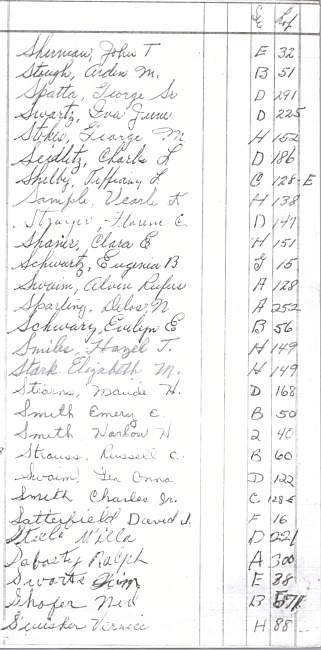 Sec Lot
Sherman, John T E 32
Stough, Arden M. B 51
Spatta, George Sr D 291
Swartz, Iva June D 225
Stokes, George M H 152
Seidlitz, Charles L D 186
Shelby, Tiffiany L C 128-E
Sample, Vearle K H 138
Strayer, Florene E. D 147
Shafer, Clara E H 151
Schwartz, Eugenia B G 15
Swaim, Alvin Rufus A 128
Sparling, Delos N A 252
Schwary, Evelyn E B 56
Smiles, Hazel T. H 149
Stark Elizabeth M. H 149
Stearns, Maude H. D 168
Smith Emery E. B 50
Smith Harlow H 2 40
Strauss, Russell C. B 60
Swaim, Onna D 122
Smith Charles Jr. C 128-E
Satterfield David J. F 16
Steele Willa D 221
Sabasty Ralph A 300
Swarts Jim E 38
B
Swisher Vernice H 88